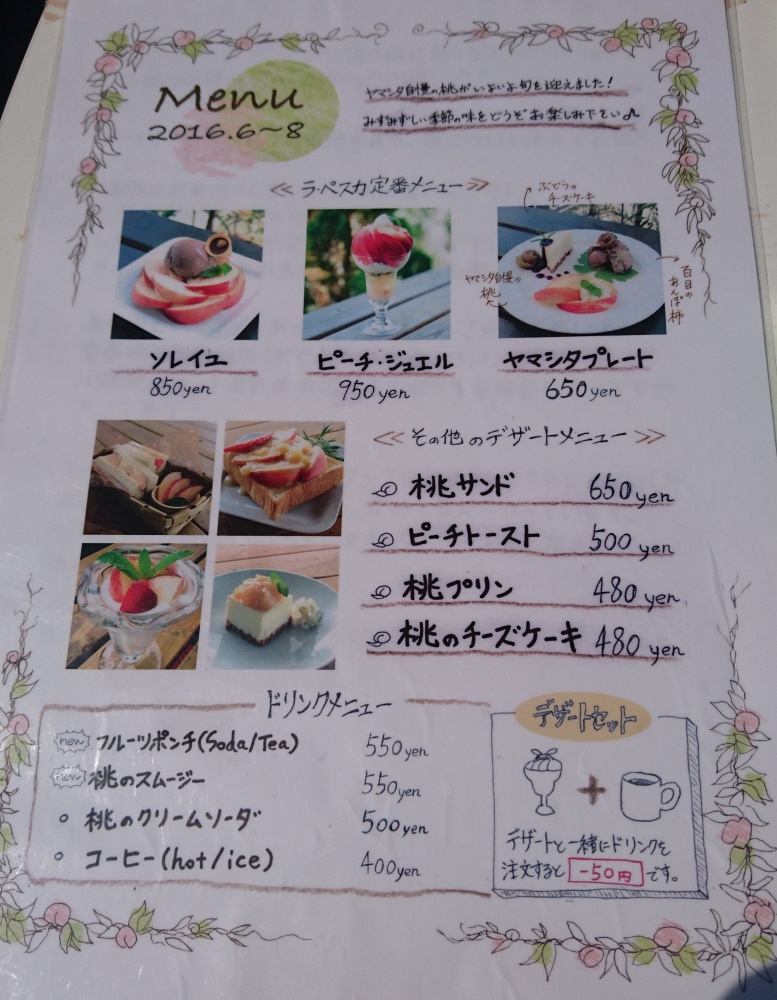 Menu
2016.6~8
ヤマシタ自慢の桃がいよいよ旬を迎えました!
みずみずしい季節の味をどうぞお楽しみ下さい♪
≪ ラ・ペスカ定番メニュー ≫
ぶどうの
チーズケーキ
ヤマシタ自慢の
桃
百目の
あんぽ柿
ソレイユ
850yen
ピーチ・ジュエル
950yen
ヤマシタプレート
650yen
≪ その他のデザートメニュー ≫
桃サンド 650yen
ピーチトースト 500yen
桃プリン 480yen
桃のチーズケーキ 480yen
ドリンクメニュー
new フルーツポンチ(Soda/Tea) 550yen
new 桃のスムージー 550yen
桃のクリームソーダ 500yen
コーヒー(hot/ice) 400yen
デザートセット
+
デザートと一緒にドリンクを
注文すると -50円 です。